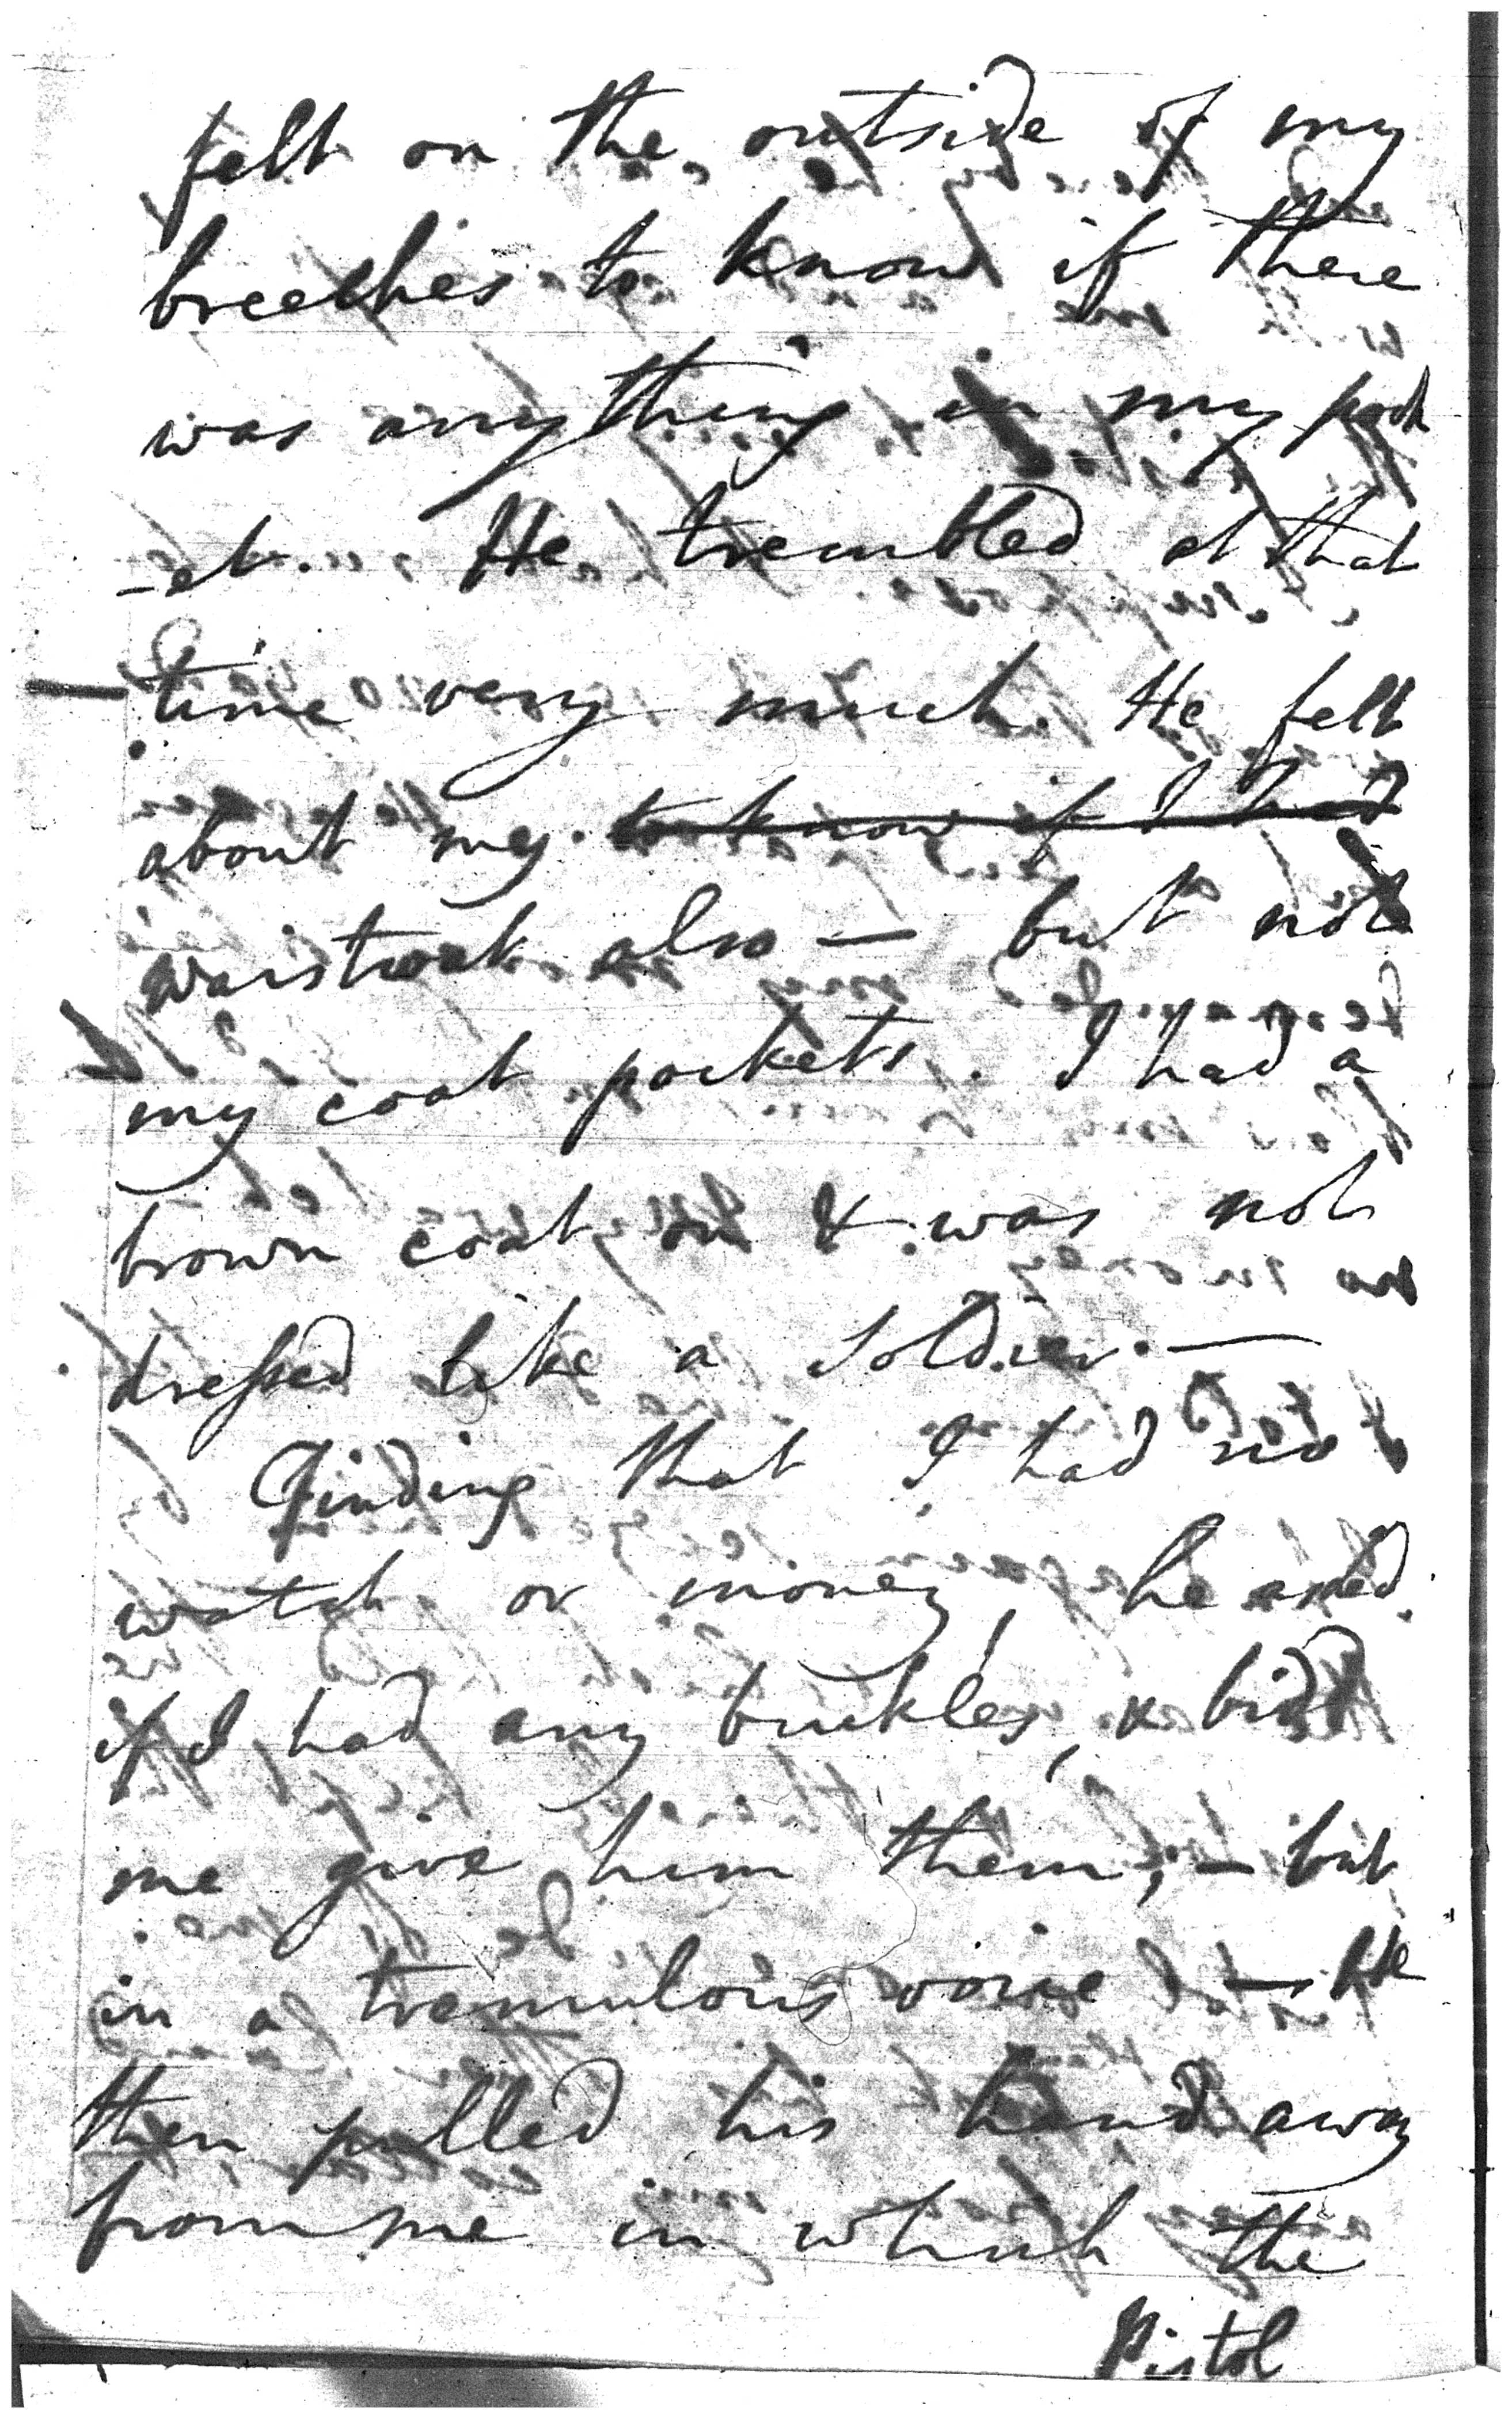 felt on the outside of my
breeches to know if there
was any thing in my pock
-et. He trembled at that
time very much. He felt
about my to know if I had
waistcoat also — but not
my coat pockets. I had a
brown coat on & was not
dressed like a Soldier. —
Finding that I had no
watch or money, he asked
if I had any buckles, & bid
me give him them; — but
in a tremulous voice — He
then pulled his hand away
from me in which the
Pistol